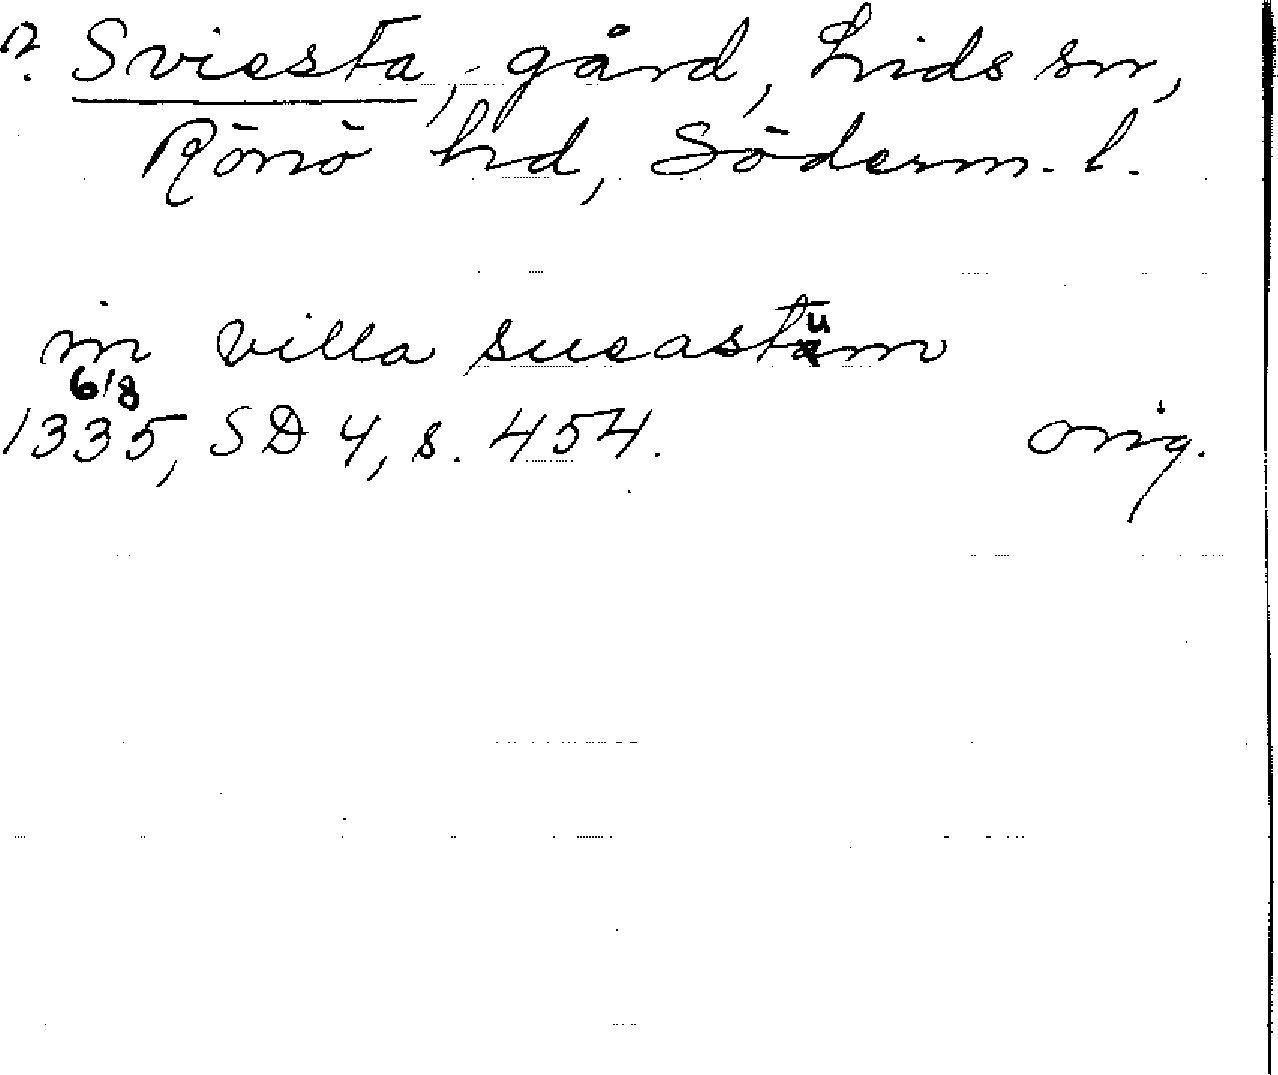 ? Sviesta, gård, Lids sn,
Rönö hd, Söderm. l.
in villa sueastum
6/8
1335, SD 4, s. 454. orig.